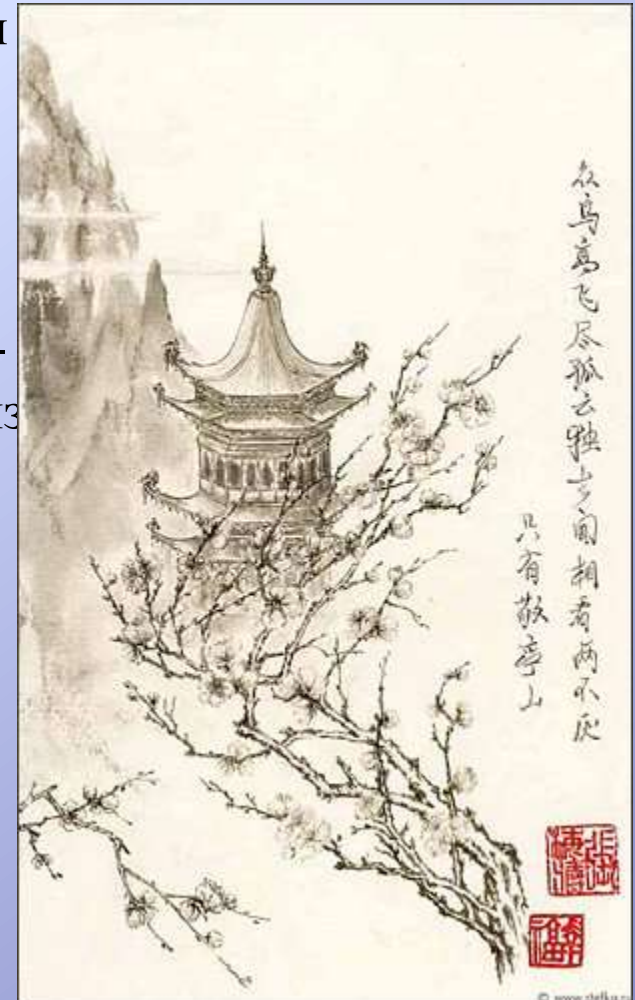 众鸟高飞尽孤云独去闲相看两不厌
只有敬亭山